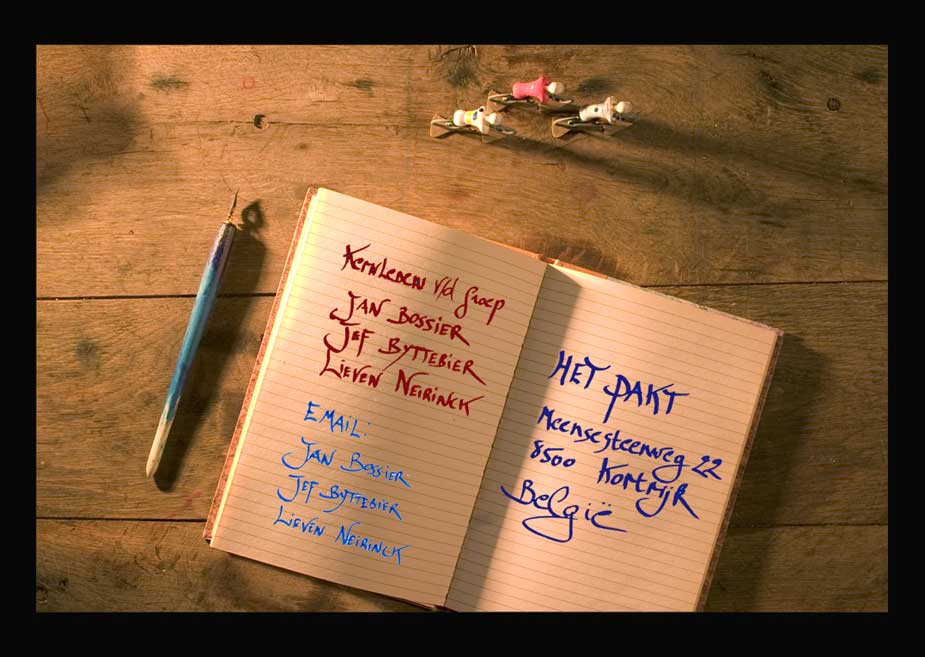 Kernleden v/d groep
JAN BOSSIER
JEF BYTTEBIER
LIEVEN NEIRINCK
EMAIL:
JAN BOSSIER
JEF BYTTEBIER
LIEVEN NEIRINCK
HET PAKT
Meensesteenweg 22
8500 Kortrijk
België